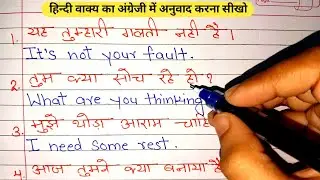 हिन्दी वाक्य का अंग्रेजी में अनुवाद करना सीखो
1. यह तुम्हारी गलती नहीं है।
It's not your fault.
2. तुम क्या सोच रहे हो?
What are you thinking
3. मुझे थोड़ा आराम
I need some rest.
4. आज तुमने क्या बनाया है